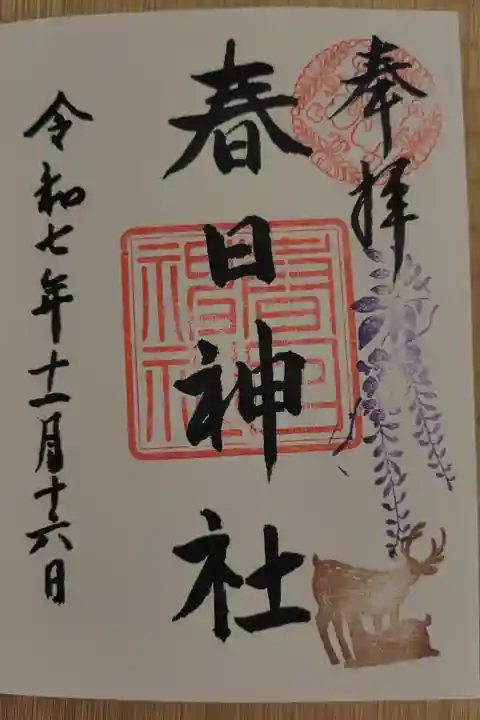 奉拝
春日神社
春日
神社
令和七年十一月十六日